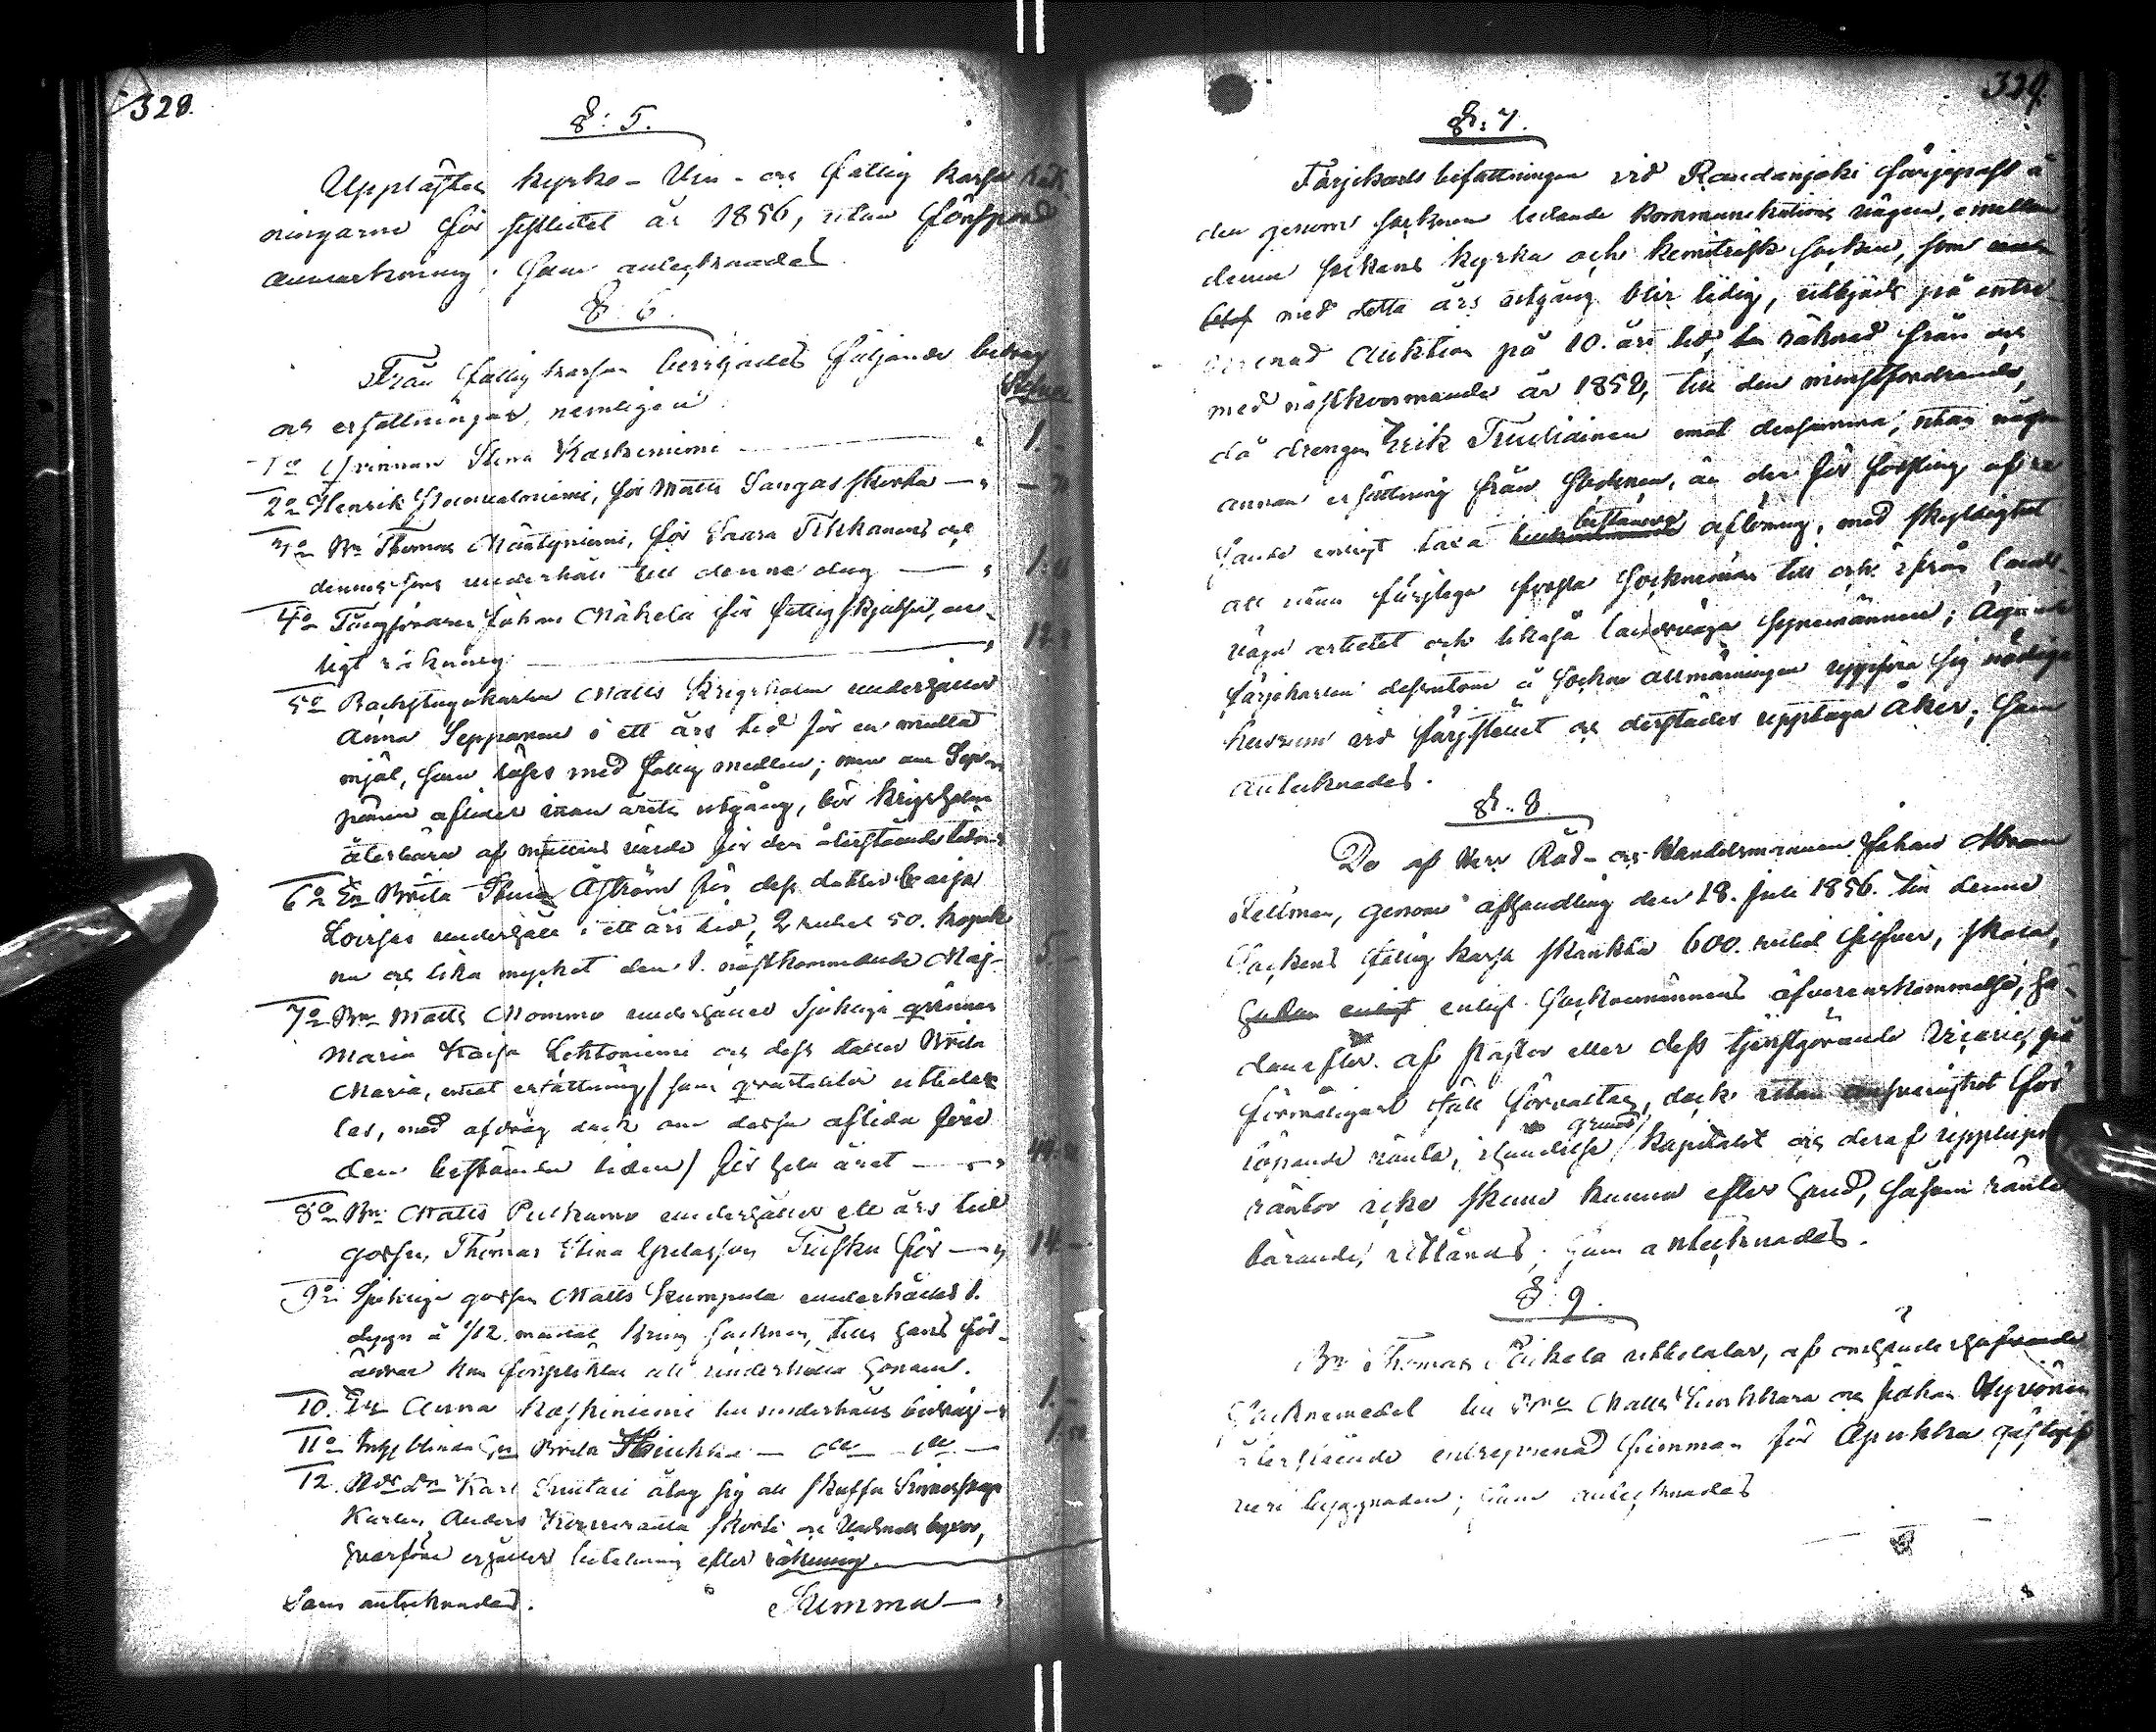 328.
§: 5.
Upplästes kyrko- Vin- och fattig kassa räk
ningarne för sistledet år 1856, utan försport
anmärkning; som antecknades.
§: 6.
Från fattig kassan beviljades följande bidrag
och ersättningar, nemligen: Silfver
1o Qvinnan Stina Kaskiniemi — " 1.-
2o Henrik, för Matts Sangas skorta — "
3o Bn Thomas Mäntyniemi, för Saara Tikkanens och
dennes sons underhåll till denne dag — "
4o Johan Mäkelä för fattig skjutser, en-
ligt räkning —
5o Backstugukarlen Matts Krigsholm underhåller
Anna Seppanen i ett års tid för en matta
mjöl, som köpes med fattig medlen; men om Sep-
pänen aflider innan årets utgång, bör Krigsholm
återbära af mattans värde för den återstående tiden
6o En Brita Stina Åström för dess dotter Caisa
Lovisas underhåll i ett års tid, 2 rubel 50. kopek
nu och lika mycket den 1. nästkommande Maj- 5.-
7o Bn Matts Mommo underhåller sjukliga qvinnan
Maria Kaisa Lehtoniemi och dess dotter Brita
Maria, emot ersättning / som qvartaliter utbeta-
les, med afdrag dock om dessa aflida före
den bestämda tiden / för hela året — "
8o Bn Matts Putkamo underhåller ett års tid
gossen Thomas Stina Gretasson Tuisku för — " 14.-
9o Sjuklige gossen Matts Kumpula underhålles 1.
dygn å 1/12 mantal kring socknen, tills hans för-
äldrar kan förpliktas att underhålla honom.
10. En Anna Kaskiniemi till underhålls bidrag — 1.-
11o Brita — do — do —
12. Karl Suutari åtog sig att skaffa
Karlen Anders skorta och Vadmals byxor,
hvarföre erhåller betalning efter räkning.
Som antecknades. Summa — "
329.
§: 7.
Färjekarls befattningen vid Raudanjoki färjeplats å
den genom socknen ledande kommunikations vägen, emellan
denna sockens kyrka och Kemiträsk socken, som
med detta års utgång blir ledig, utbjöds på entre-
prenad auktion på 10. års tid, räknad från och
med nästkommande år 1858, till den minstfordrande,
då drengen Erik Tuuliainen emot densamma, utan någon
annan ersättning från socknen, än den för forsling af re
sande enligt taxa bestämda aflöning, med skyldighet
att utan färjlega forsla socknemän till och ifrån lands-
vägs arbetet och likaså landsvägs synemännen; ägande
färjekarlen dessutom å socknens allmänningen uppföra sig nödiga
husrum vid färjstället och derstädes upptaga åker; som
antecknades.
§: 8.
De af Herr Råd- och Handelsmannen Johan Abram
Fellman, genom afhandling den 18. Juli 1856. till denne
sockens fattig kassa skänkta 600. rubel silfver, skola,
enligt sockenmännens öfverenskommelse, hä-
danefter af Pastor eller dess tjenstgörande Vicarie, på
förmånligast sätt förvaltas, dock utan ansvarighet för
löpande ränta, i händelse grund kapitalet och deraf upplupna
räntor icke skulle kunna efter hand, såsom ränte
bärande, utlånas; som antecknades.
§: 9.
Bn Thomas utbetalar, af omhänderhafvande
Socknemedel till Bne Matts och Johan Hyvönen
återstående entreprenad summan för Apukka gästgif
veri byggnaden; som antecknades